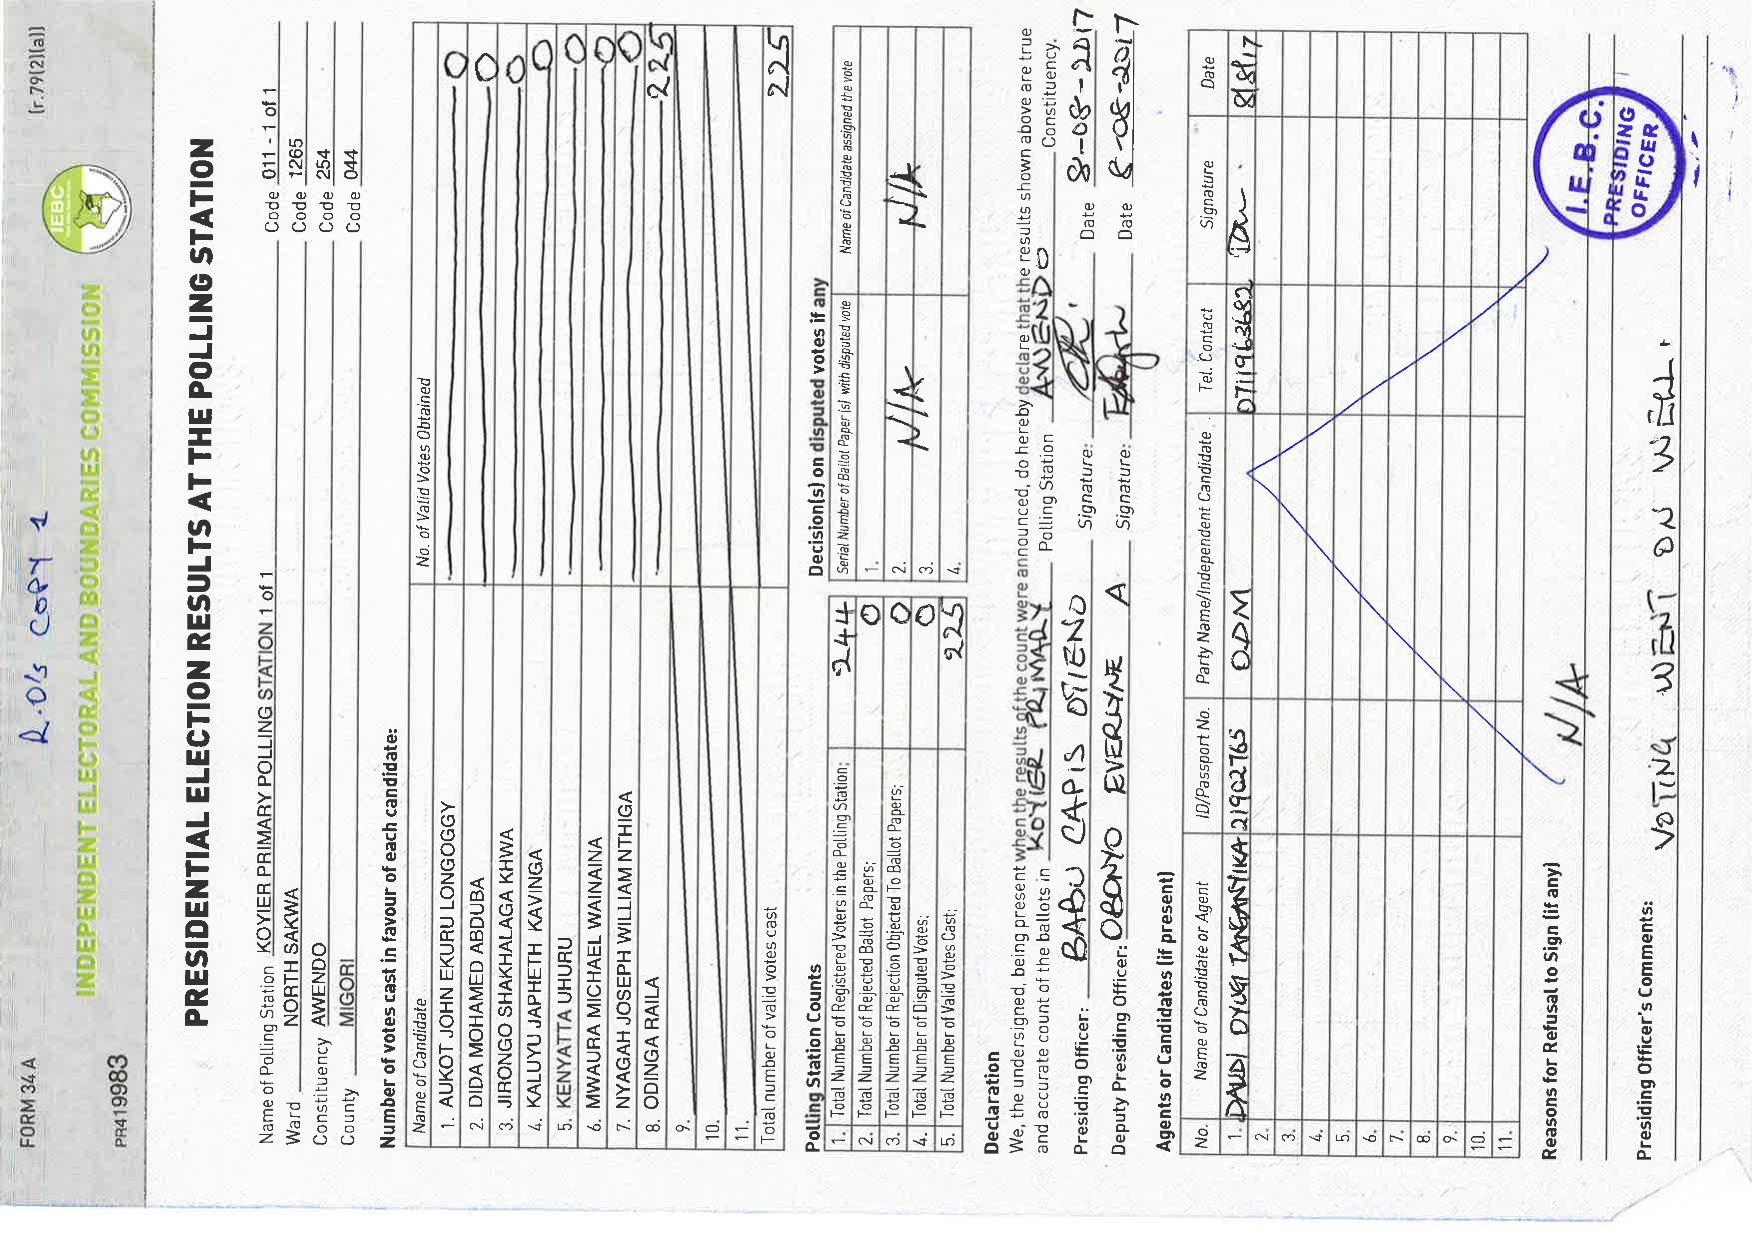 R.O's COPY 1
FORM 34 A
(r.79(2)(a))
IEBC
INDEPENDENT ELECTORAL AND BOUNDARIES COMMISSION
PR419983
PRESIDENTIAL ELECTION RESULTS AT THE POLLING STATION
Name of Polling Station KOYIER PRIMARY POLLING STATION 1 of 1 Code 011 - 1 of 1
Ward NORTH SAKWA Code 1265
Constituency AWENDO Code 254
County MIGORI Code 044
Number of votes cast in favour of each candidate:
Name of Candidate No. of Valid Votes Obtained
1. AUKOT JOHN EKURU LONGOGGY 0
2. DIDA MOHAMED ABDUBA 0
3. JIRONGO SHAKHALAGA KHWA 0
4. KALUYU JAPHETH KAVINGA 0
5. KENYATTA UHURU 0
6. MWAURA MICHAEL WAINAINA 0
7. NYAGAH JOSEPH WILLIAM NTHIGA 0
8. ODINGA RAILA 225
9.
10.
11.
Total number of valid votes cast 225
Polling Station Counts
1. Total Number of Registered Voters in the Polling Station; 244
2. Total Number of Rejected Ballot Papers; 0
3. Total Number of Rejection Objected To Ballot Papers; 0
4. Total Number of Disputed Votes; 0
5. Total Number of Valid Votes Cast; 225
Decision(s) on disputed votes if any
Serial Number of Ballot Paper (s) with disputed vote Name of Candidate assigned the vote
1.
2. N/A N/A
3.
4.
Declaration
We, the undersigned, being present when the results of the count were announced, do hereby declare that the results shown above are true
and accurate count of the ballots in KOYIER PRIMARY Polling Station AWENDO Constituency.
Presiding Officer: BABU CAPIS OTIENO Signature: Date 8-08-2017
Deputy Presiding Officer: OBONYO EVERLYNE A Signature: Date 8-08-2017
Agents or Candidates (if present)
No. Name of Candidate or Agent ID/Passport No. Party Name/Independent Candidate Tel. Contact Signature Date
1. DAUDI OYUGI TANGANYIKA 21902765 ODM 0711963682 8/8/17
2.
3.
4.
5.
6.
7.
8.
9.
10.
11.
Reasons for Refusal to Sign (if any)
N/A
I.E.B.C.
PRESIDING
OFFICER
Presiding Officer's Comments:
VOTING WENT ON WELL.